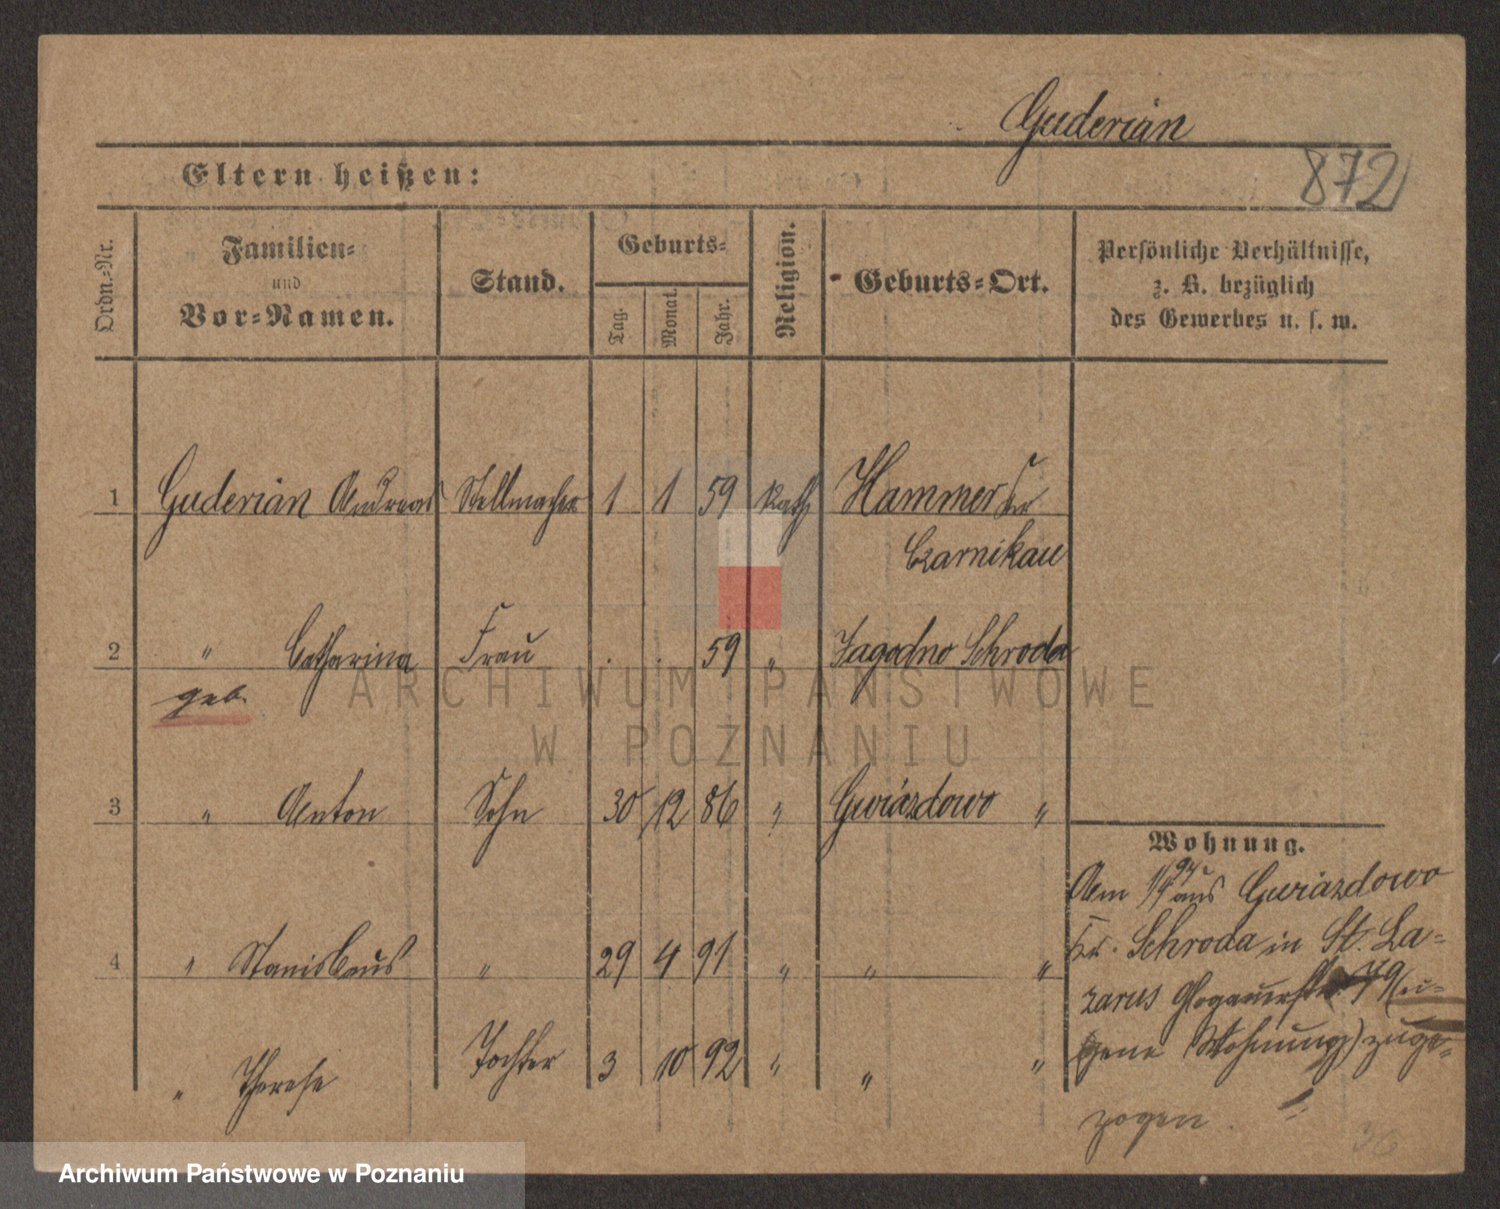 Guderian
872
Eltern heißen:
Ordn.-Nr.
Familien-
und
Vor-Namen.
Stand.
Geburts-
Tag.
Monat.
Jahr.
Religion.
Geburts-Ort.
Persönliche Verhältnisse,
z. B. bezüglich
des Gewerbes u. s. w.
1 Guderian Andreas Stellmacher 1 1 59 Kath Hammer Kr
Czarnikau
2 " Catharina Frau . . 59 " Jagodno Schroda
geb.
3 " Anton Sohn 30 12 86 " Gwiazdowo "
4 " Stanislaus " 29 4 91 " " "
" Therese Tochter 3 10 92 " " "
Wohnung.
Am 1/4 94 aus Gwiazdowo
Kr. Schroda in St. La-
zarus Glogauerstr. 79 (ei-
gene Wohnung) zuge-
zogen.
36
ARCHIWUM PAŃSTWOWE
W POZNANIU
Archiwum Państwowe w Poznaniu